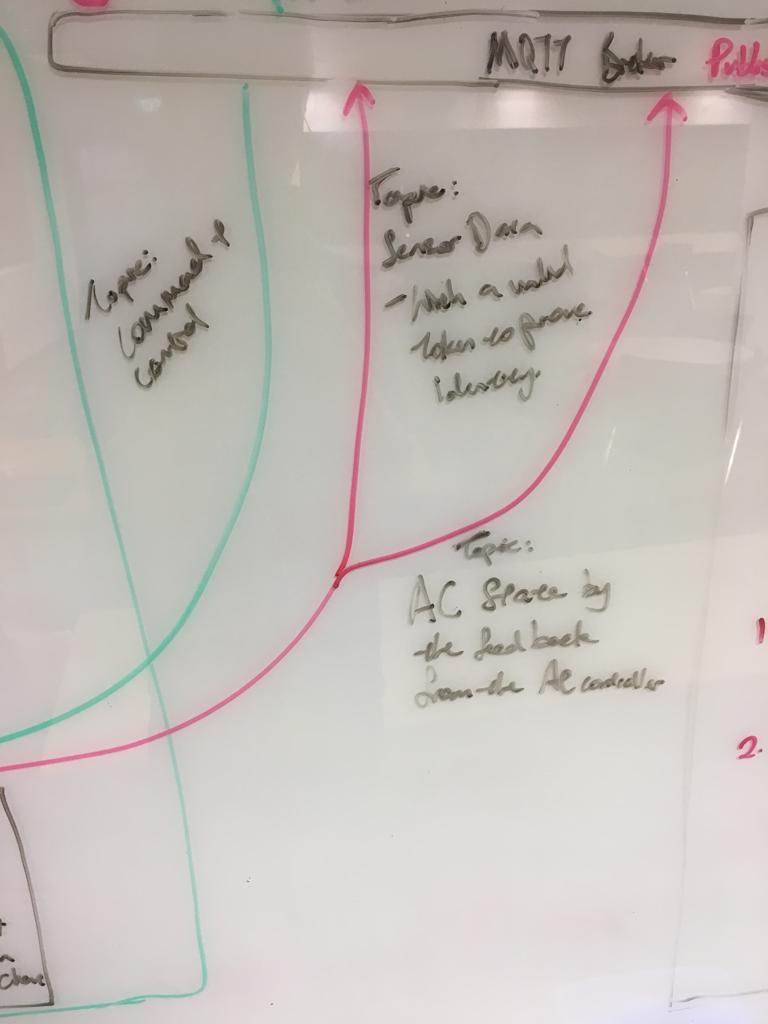 MQTT Broker
Topic:
Command +
control
Topic:
Sensor Data
- With a valid
token to prove
identity.
Topic:
AC State by
the feedback
from the AC controller
1
2.